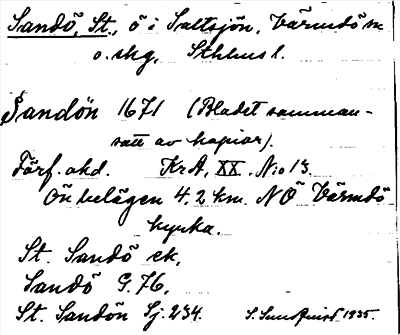 Sandö, St., ö i Saltsjön, Värmdö sn
o. skg, Sthlms l.
Sandön 1671 (Bladet samman-
satt av kopior).
Förf. okd. KrA, XX. No 13.
Ön belägen 4.2 km. NÖ Värmdö
kyrka.
St. Sandö ek.
Sandö G. 76.
St. Sandön Sj. 234. S. Sundqvist 1935.